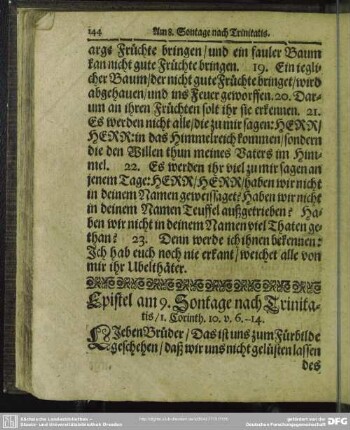 144 Am 8. Sontage nach Trinitatis.
args Früchte bringen/ und ein fauler Baum
kan nicht gute Früchte bringen. 19. Ein iegli-
cher Baum/ der nicht gute Früchte bringet/ wird
abgehauen/ und ins Feuer geworffen. 20. Dar-
um an ihren Früchten solt ihr sie erkennen. 21.
Es werden nicht alle/ die zu mir sagen: HERR/
HERR: in das Himmelreich kommen/ sondern
die den Willen thun meines Vaters im Him-
mel. 22. Es werden ihr viel zu mir sagen an
jenem Tage: HERR/ HERR/ haben wir nicht
in deinem Namen geweissaget? Haben wir nicht
in deinem Namen Teuffel außgetrieben? Ha-
ben wir nicht in deinem Namen viel Thaten ge-
than? 23. Denn werde ich ihnen bekennen:
Jch hab euch noch nie erkant/ weichet alle von
mir ihr Ubelthäter.
Epistel am 9. Sontage nach Trinita-
tis/ 1. Corinth. 10. v. 6.-14.
LJeben Brüder/ Das ist uns zum Fürbilde
geschehen/ daß wir uns nicht gelüsten lassen
des